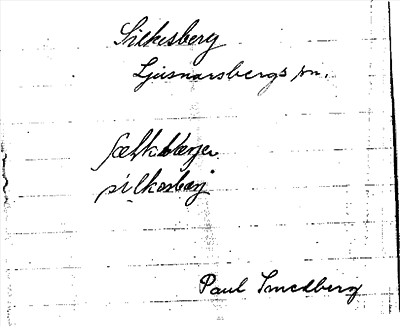 Silkesberg
Ljusnarsbergs sn.
sælkabærjer
silkasbærj
Paul Smedberg